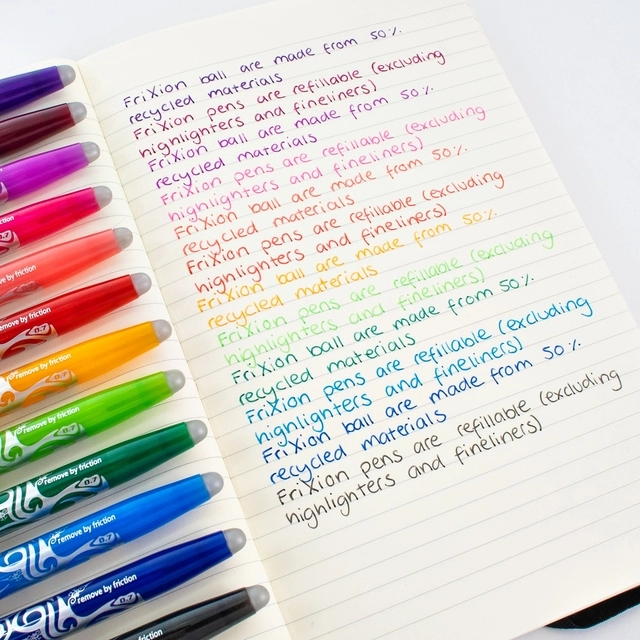 FriXion ball are made from 50%
recycled materials
FriXion pens are refillable (excluding
highlighters and fineliners)
FriXion ball are made from 50%
recycled materials
FriXion pens are refillable (excluding
highlighters and fineliners)
FriXion ball are made from 50%
recycled materials
FriXion pens are refillable (excluding
highlighters and fineliners)
FriXion ball are made from 50%
recycled materials
FriXion pens are refillable (excluding
highlighters and fineliners)
FriXion ball are made from 50%
recycled materials
FriXion pens are refillable (excluding
highlighters and fineliners)
FriXion ball are made from 50%
recycled materials
FriXion pens are refillable (excluding
highlighters and fineliners)
friction
by friction
remove by friction
0.7
remove by friction
0.7
remove by friction
0.7
remove by friction
0.7
remove by friction
0.7
remove by friction
0.7
remove by friction